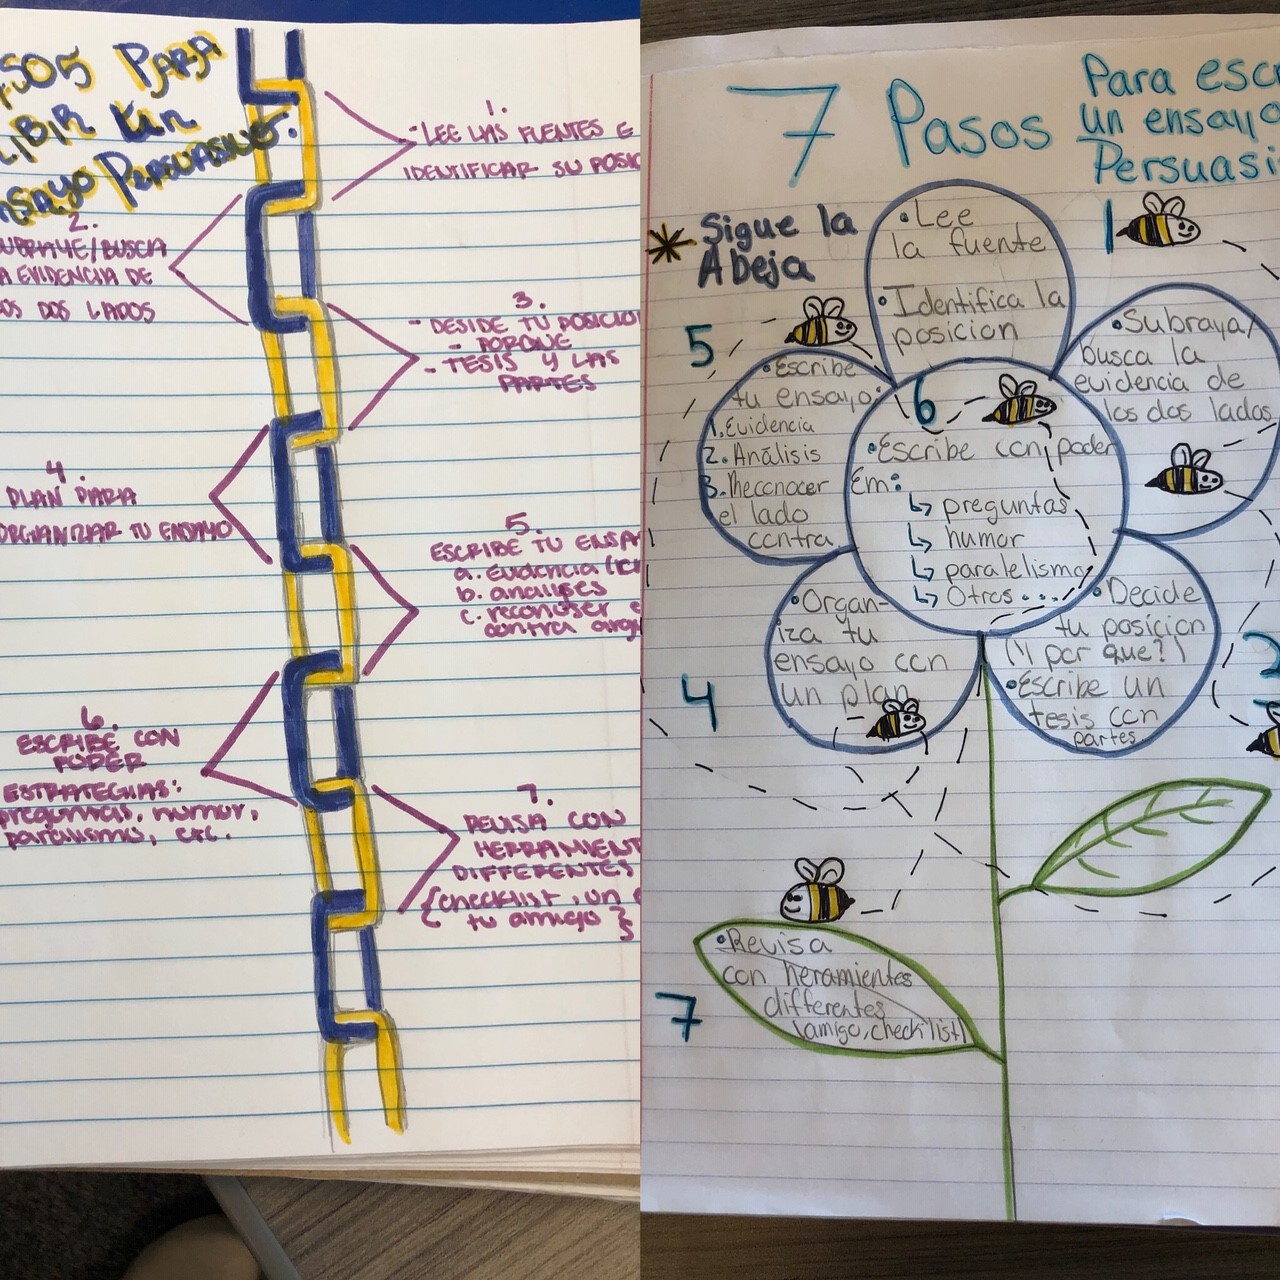 PARA
UN
PERSUASIVO.
1.
- LEE LAS FUENTES E
IDENTIFICAR SU
2.
BUSCA
EVIDENCIA DE
DOS LADOS
3.
- DESIDE TU
- PORQUE
- TESIS Y LAS
PARTES
4.
PLAN PARA
ORGANIZAR TU ENSAYO
5.
ESCRIBE TU
a. evidencia
b. analises
c. reconoser
contra
6.
ESCRIBE CON
PODER
ESTRATEGIAS:
preguntas, humor,
etc.
7.
REVISA CON
DIFFERENTES
{checklist, un
tu amigo }
7 Pasos
Para
un ensayo
* Sigue la
Abeja
1
• Lee
la fuente
• Identifica la
posicion
• Subraya/
busca la
evidencia de
los dos lados
2
• Decide
tu posicion
(Y por que?)
• Escribe un
tesis con
partes
4
• Organ-
iza tu
ensayo con
un plan
5
• Escribe
tu ensayo:
1. Evidencia
2. Análisis
3. Reconocer
el lado
contra
6
• Escribe con poder
Em:
↳ preguntas
↳ humor
↳ paralelismo
↳ Otros ....
7
• Revisa
con heramientes
differentes
(amigo, check list)